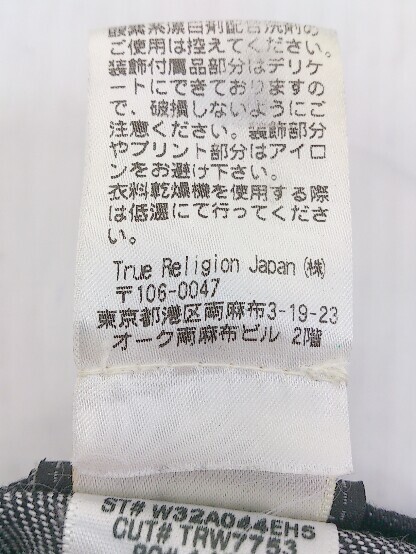 酸素系漂白剤配合洗剤の
ご使用は控えてください。
装飾付属品部分はデリケ
ートにできておりますの
で、破損しないようにご
注意ください。装飾部分
やプリント部分はアイロ
ンをお避け下さい。
衣料乾燥機を使用する際
は低温にて行ってくださ
い。
True Religion Japan (株)
〒106-0047
東京都港区南麻布3-19-23
オーク南麻布ビル 2階
ST# W32A044EHS
CUT# TRW7753